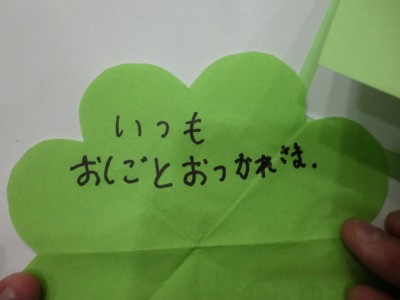 いつも
おしごとおつかれさま.